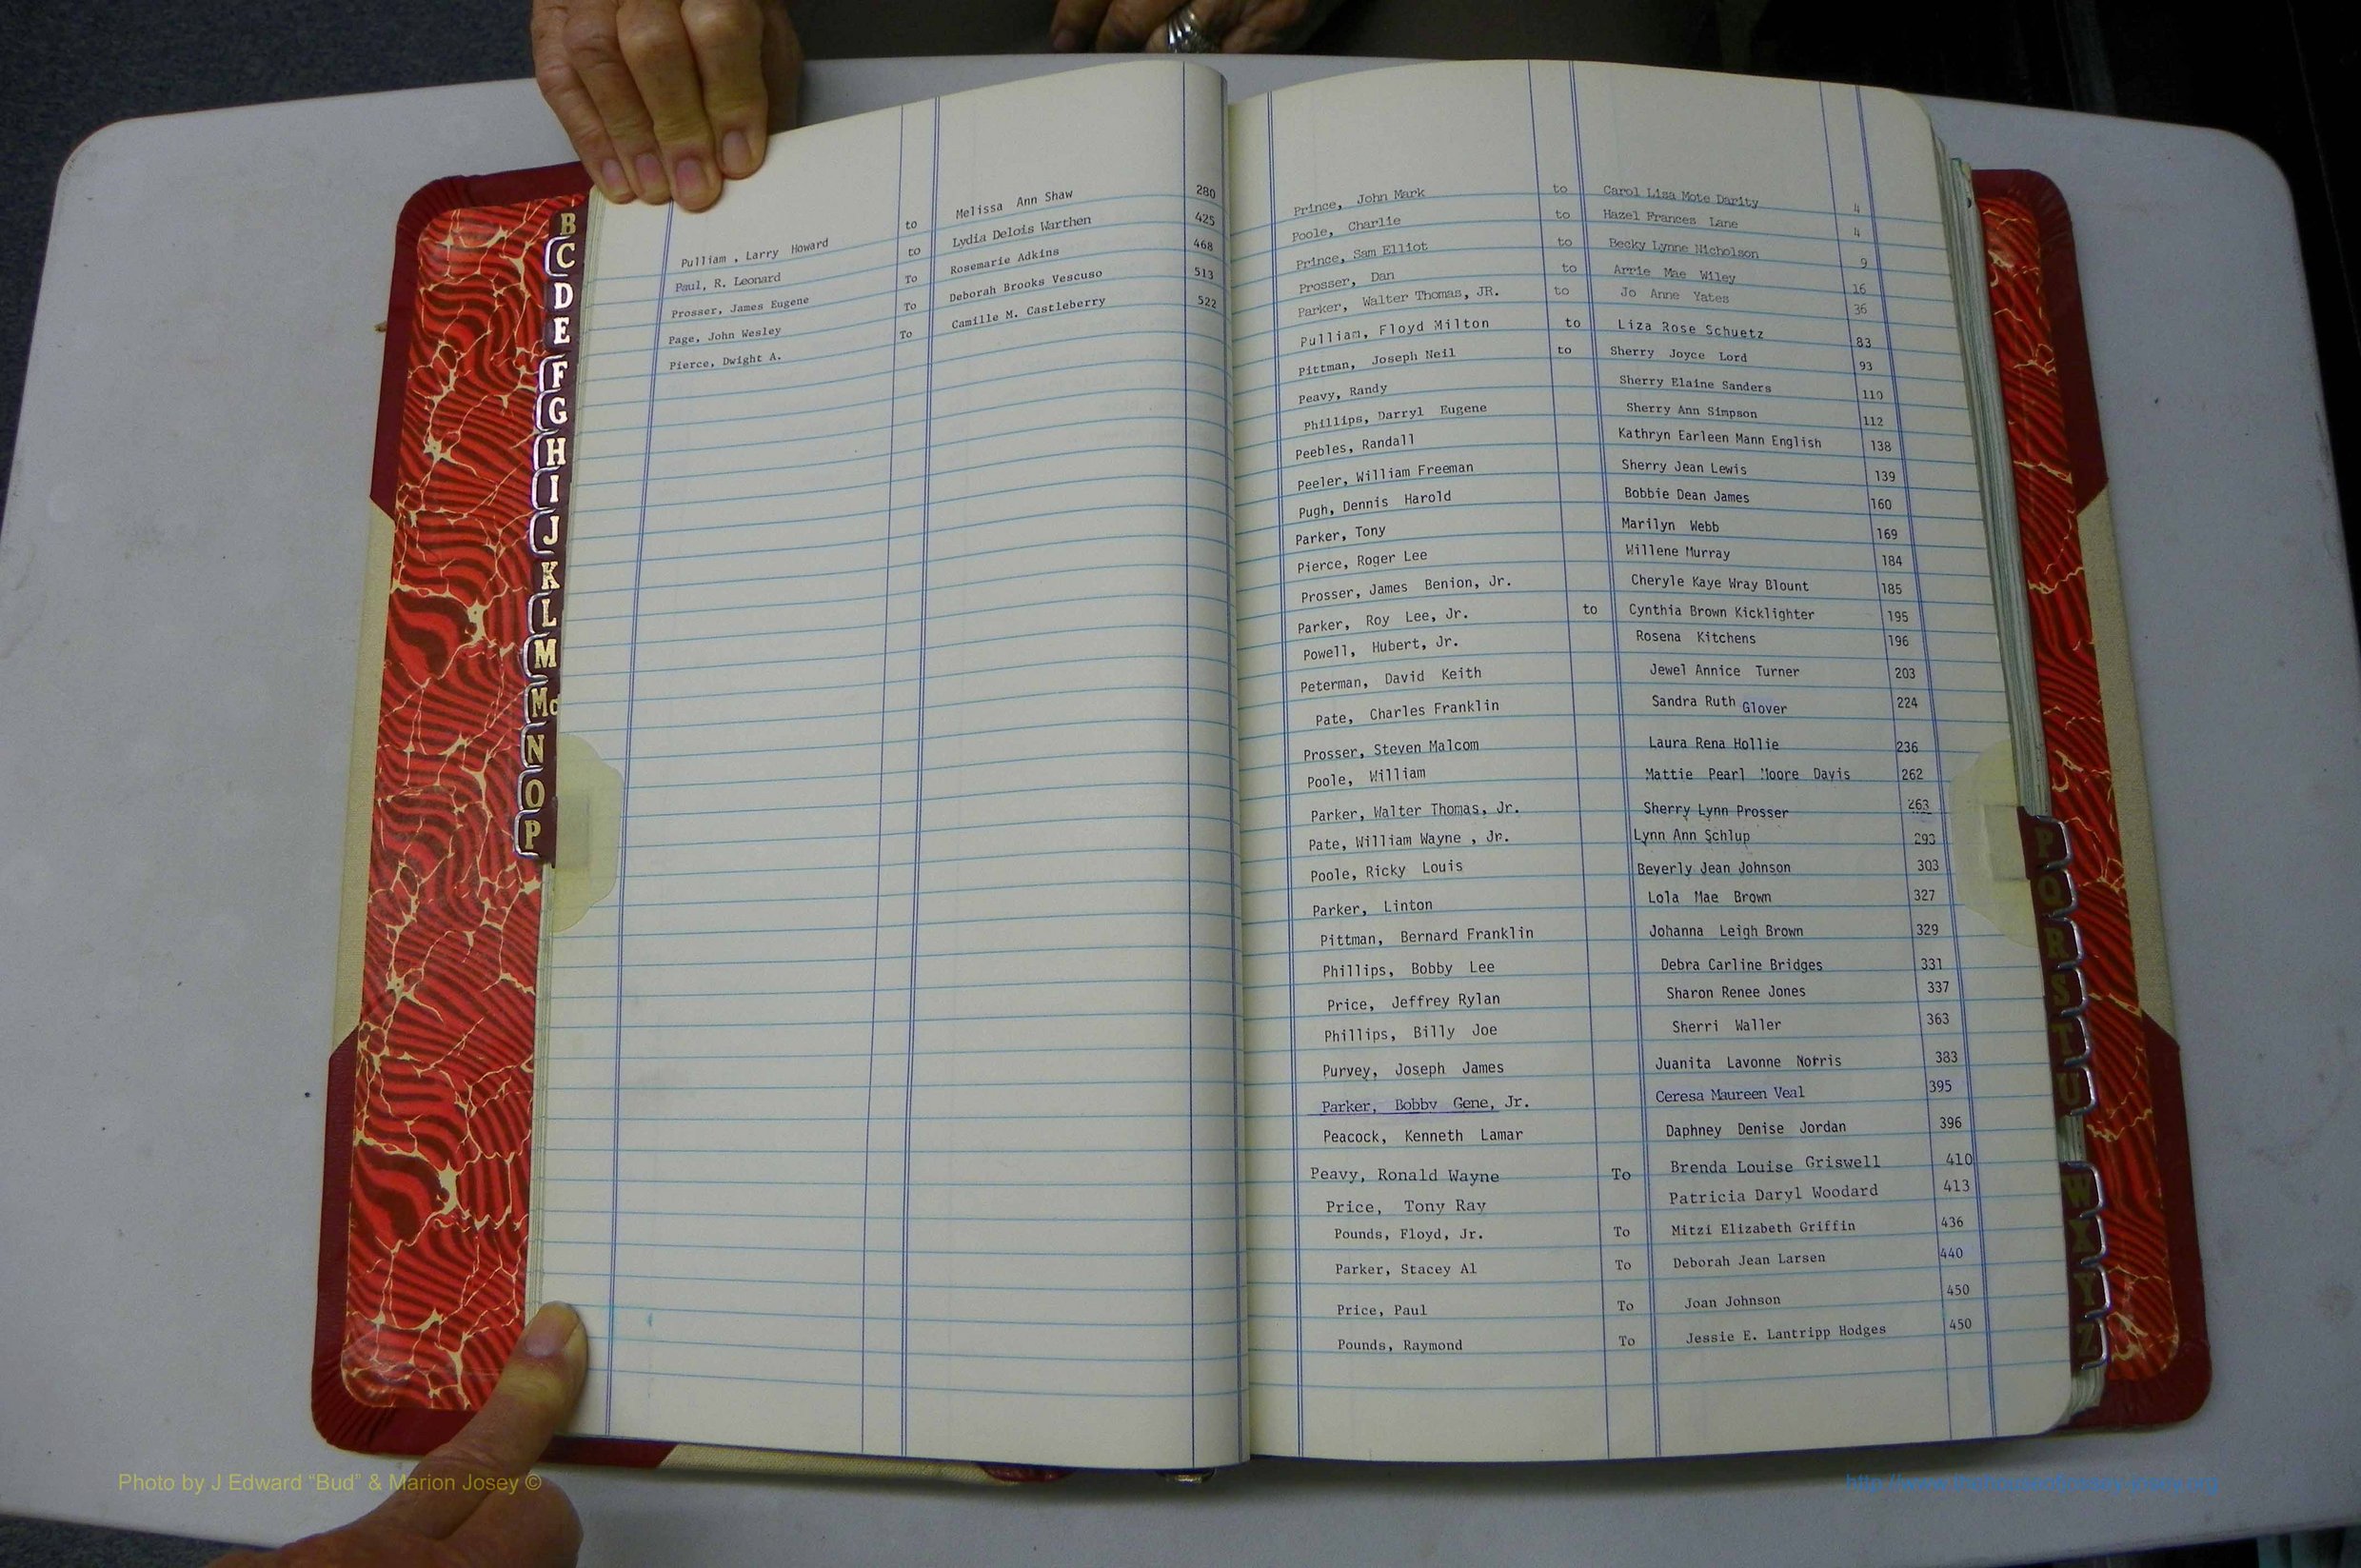 B
C
D
E
F
G
H
I
J
K
L
M
Mc
N
O
P
Pulliam , Larry Howard to Melissa Ann Shaw 280
Paul, R. Leonard to Lydia Delois Warthen 425
Prosser, James Eugene To Rosemarie Adkins 468
Page, John Wesley To Deborah Brooks Vescuso 513
Pierce, Dwight A. To Camille M. Castleberry 522
Prince, John Mark to Carol Lisa Mote Darity 4
Poole, Charlie to Hazel Frances Lane 4
Prince, Sam Elliot to Becky Lynne Nicholson 9
Prosser, Dan to Arrie Mae Wiley 16
Parker, Walter Thomas, JR. to Jo Anne Yates 36
Pulliam, Floyd Milton to Liza Rose Schuetz 83
Pittman, Joseph Neil to Sherry Joyce Lord 93
Peavy, Randy Sherry Elaine Sanders 110
Phillips, Darryl Eugene Sherry Ann Simpson 112
Peebles, Randall Kathryn Earleen Mann English 138
Peeler, William Freeman Sherry Jean Lewis 139
Pugh, Dennis Harold Bobbie Dean James 160
Parker, Tony Marilyn Webb 169
Pierce, Roger Lee Willene Murray 184
Prosser, James Benion, Jr. Cheryle Kaye Wray Blount 185
Parker, Roy Lee, Jr. to Cynthia Brown Kicklighter 195
Powell, Hubert, Jr. Rosena Kitchens 196
Peterman, David Keith Jewel Annice Turner 203
Pate, Charles Franklin Sandra Ruth Glover 224
Prosser, Steven Malcom Laura Rena Hollie 236
Poole, William Mattie Pearl Moore Davis 262
Parker, Walter Thomas, Jr. Sherry Lynn Prosser 263
Pate, William Wayne , Jr. Lynn Ann Schlup 293
Poole, Ricky Louis Beverly Jean Johnson 303
Parker, Linton Lola Mae Brown 327
Pittman, Bernard Franklin Johanna Leigh Brown 329
Phillips, Bobby Lee Debra Carline Bridges 331
Price, Jeffrey Rylan Sharon Renee Jones 337
Phillips, Billy Joe Sherri Waller 363
Purvey, Joseph James Juanita Lavonne Norris 383
Parker, Bobby Gene, Jr. Ceresa Maureen Veal 395
Peacock, Kenneth Lamar Daphney Denise Jordan 396
Peavy, Ronald Wayne To Brenda Louise Griswell 410
Price, Tony Ray Patricia Daryl Woodard 413
Pounds, Floyd, Jr. To Mitzi Elizabeth Griffin 436
Parker, Stacey Al To Deborah Jean Larsen 440
Price, Paul To Joan Johnson 450
Pounds, Raymond To Jessie E. Lantripp Hodges 450
P
Q
R
S
T
U
W
X
Y
Z
Photo by J Edward “Bud” & Marion Josey ©